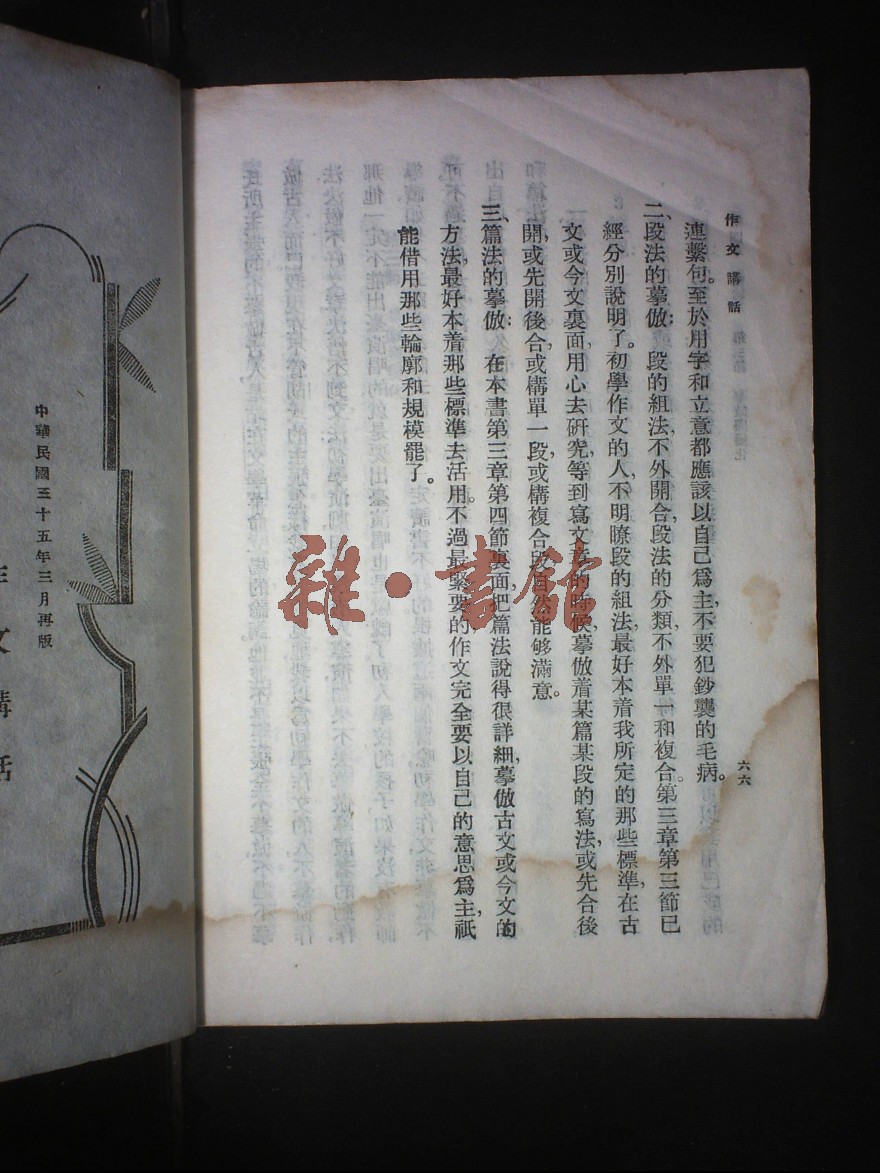 作文講話
六六
連繫句。至於用字和立意都應該以自己爲主,不要犯鈔襲的毛病。
二、段法的摹倣: 段的組法,不外開合,段法的分類,不外單一和複合。第三章第三節已
經分別說明了。初學作文的人,不明瞭段的組法,最好本着我所定的那些標準,在古
文或今文裏面,用心去研究,等到寫文章的時候,摹倣着某篇某段的寫法,或先合後
開,或先開後合,或構單一段,或構複合段,自然能够滿意。
三、篇法的摹倣: 在本書第三章第四節裏面,把篇法說得很詳細,摹倣古文或今文的
方法,最好本着那些標準去活用。不過最緊要的,作文完全要以自己的意思爲主,祇
能借用那些輪廓和規模罷了。
中華民國三十五年三月再版
文講話
雜·書館